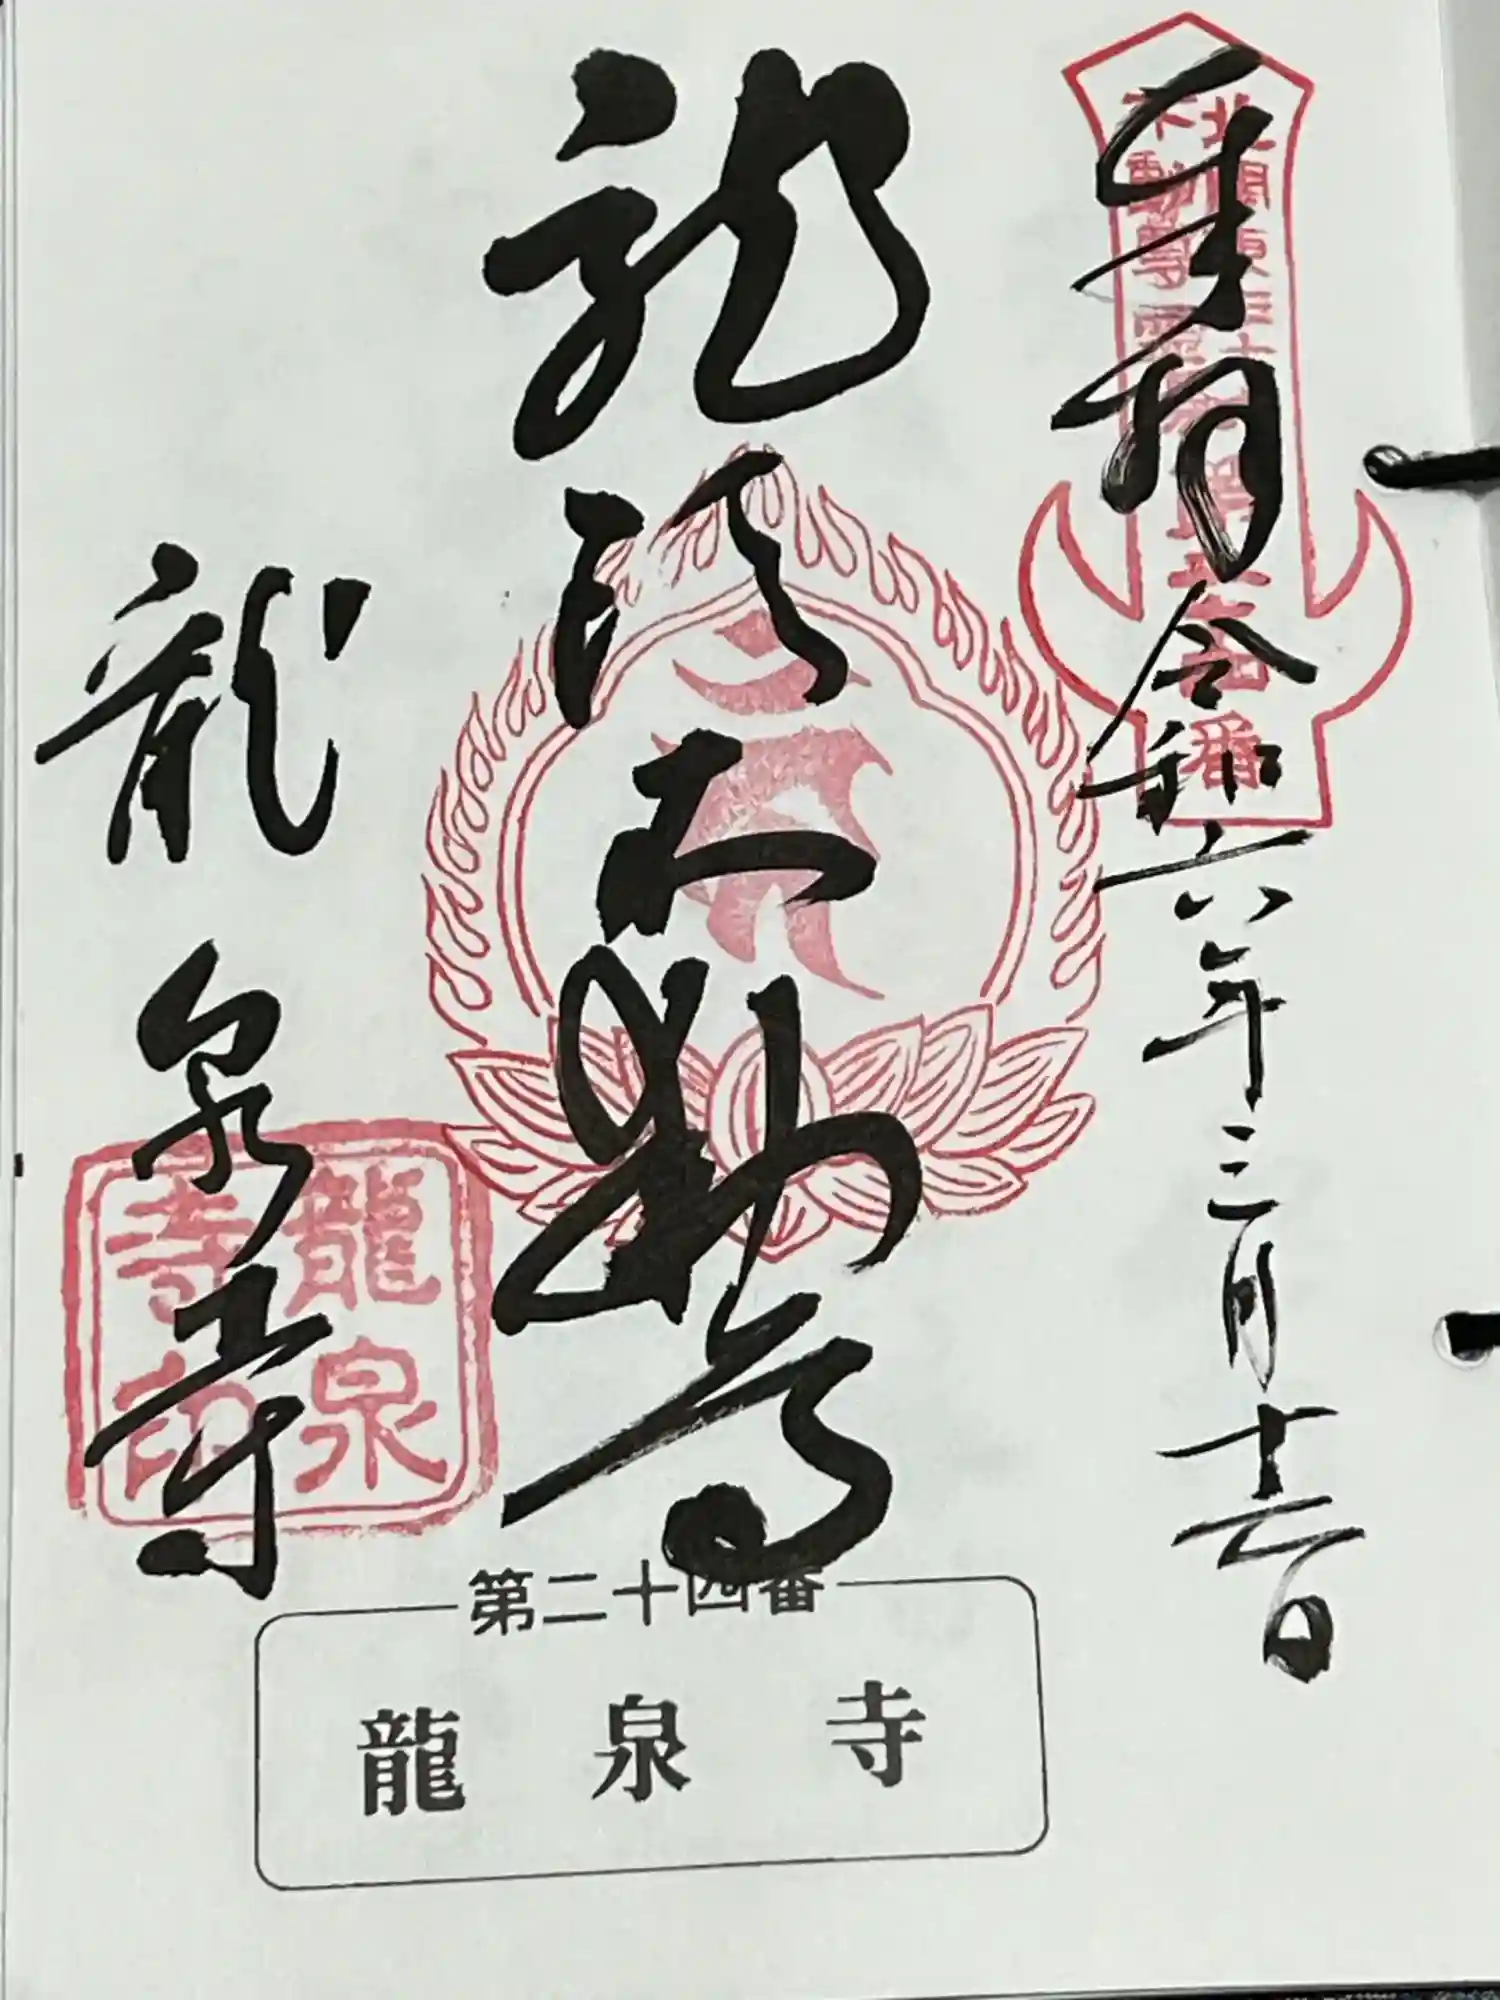 奉拝 令和六年三月十六日
北関東三十六
不動尊霊場
第二十四番
龍頭不動尊
龍泉寺
龍泉
寺印
第二十四番
龍泉寺